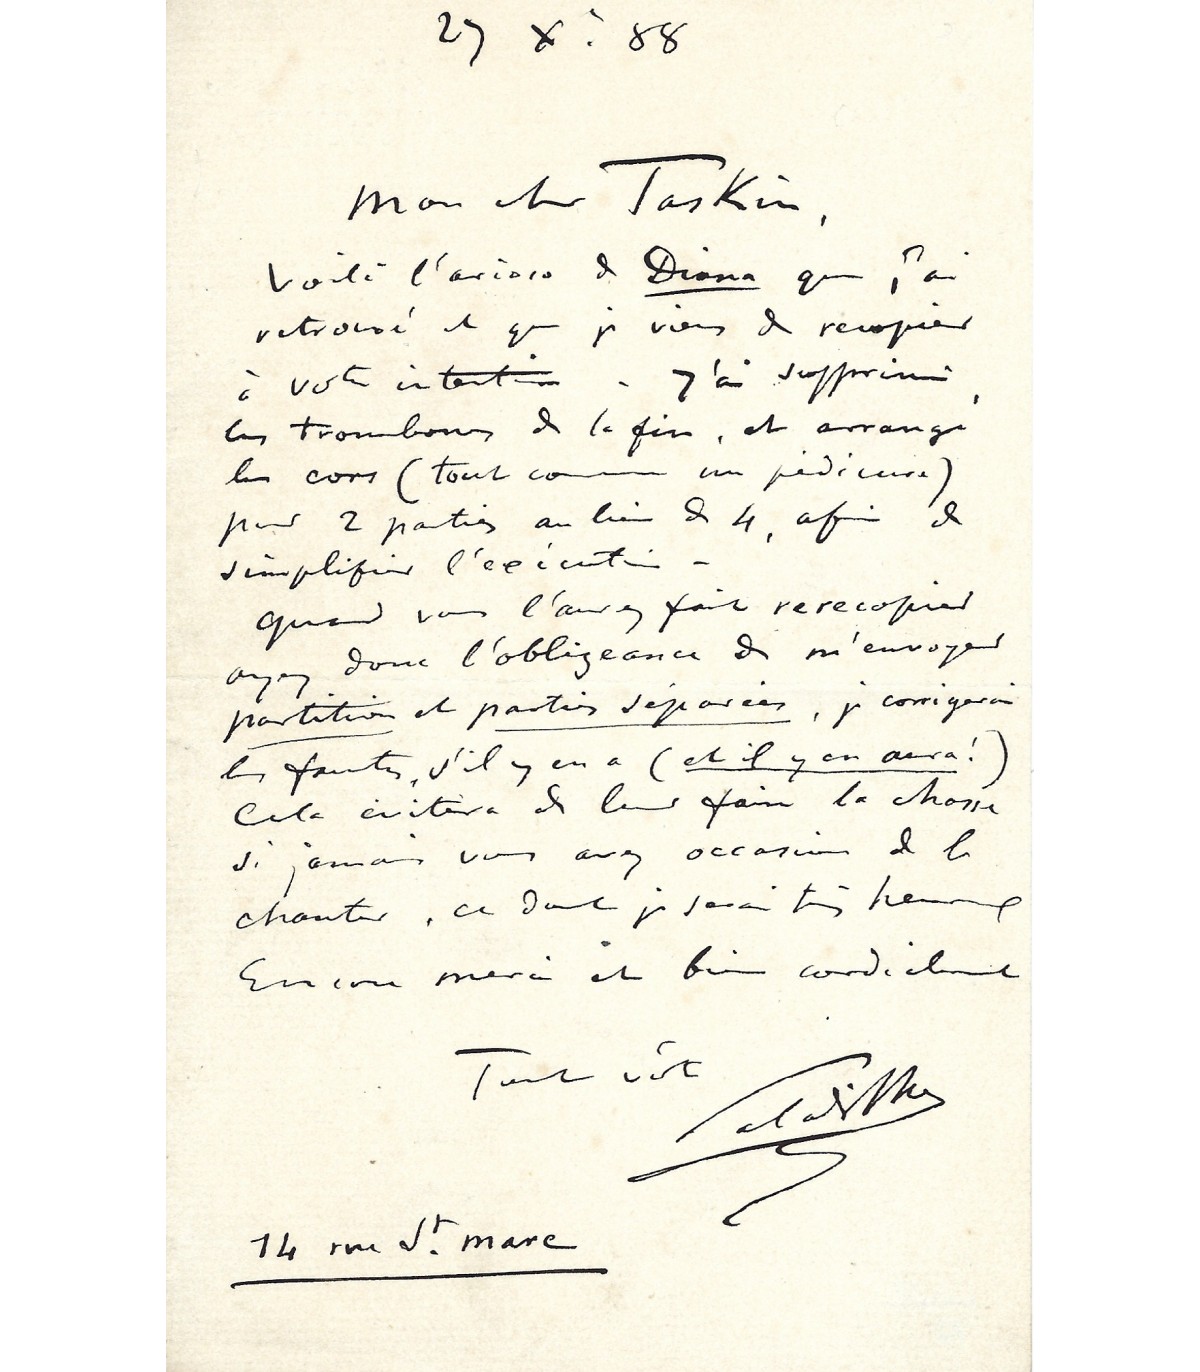 27 Xe 88
Mon cher Taskin,
Voilà l'arioso de Diana que j'ai
retrouvé et que je viens de recopier
à votre intention - J'ai supprimé,
les trombones de la fin, et arrangé
les cors (tout comme un pédicure)
pour 2 parties au lieu de 4, afin de
simplifier l'exécution -
Quand vous l'aurez fait rerecopier
ayez donc l'obligeance de m'envoyer
partition et parties séparées, je corrigerai
les fautes, s'il y en a (et il y en aura!)
Cela évitera de leur faire la chasse
si jamais vous avez occasion de le
chanter, ce dont je serai très heureux
Encore merci et bien cordialement
Tout vôtre
Paladilhe
14 rue St. Marc